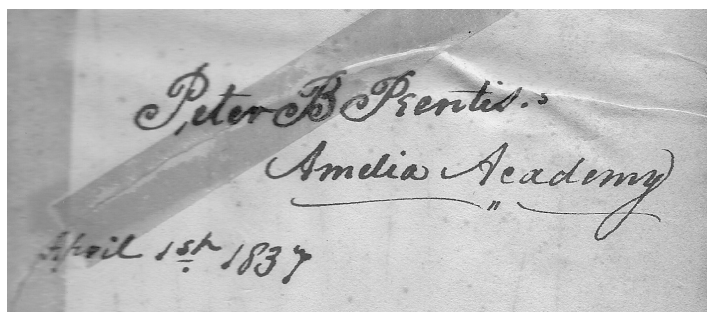 Peter B Prentis.s
Amelia Academy
"
April 1st 1837